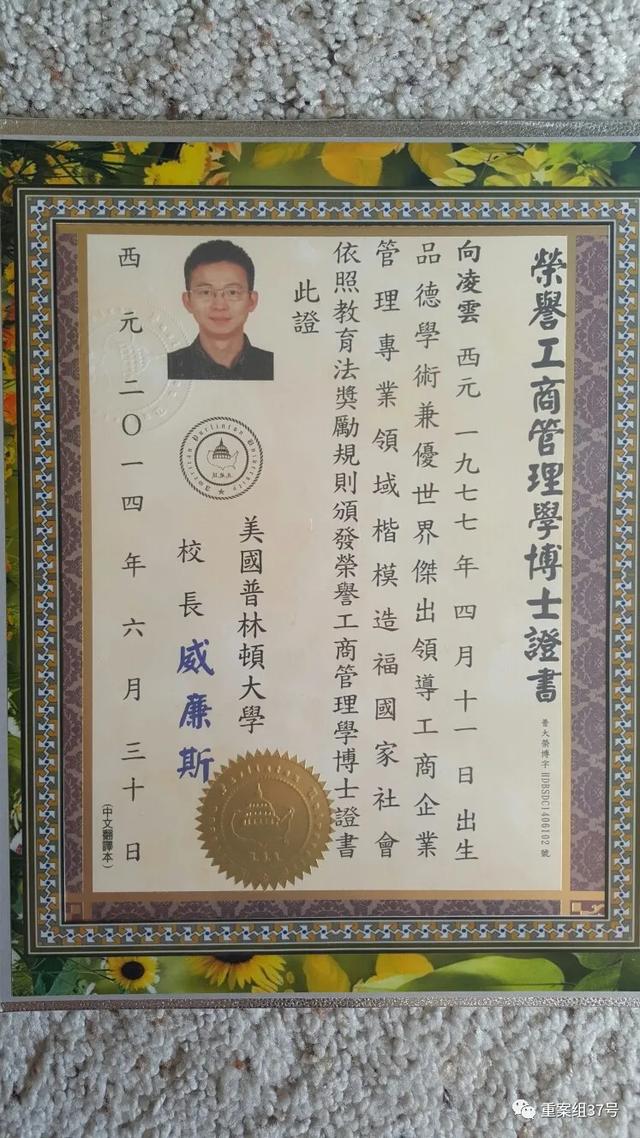 榮譽工商管理學博士證書
普大榮博字 HDBSDC1406102 號
向凌雲 西元一九七七年四月十一日出生
品德學術兼優世界傑出領導工商企業
管理專業領域楷模造福國家社會
依照教育法獎勵規則頒發榮譽工商管理學博士證書
此證
美國普林頓大學
校長 威廉斯
American Purlinton University
U.S.A.
西元二〇一四年六月三十日
(中文翻譯本)
重案组37号